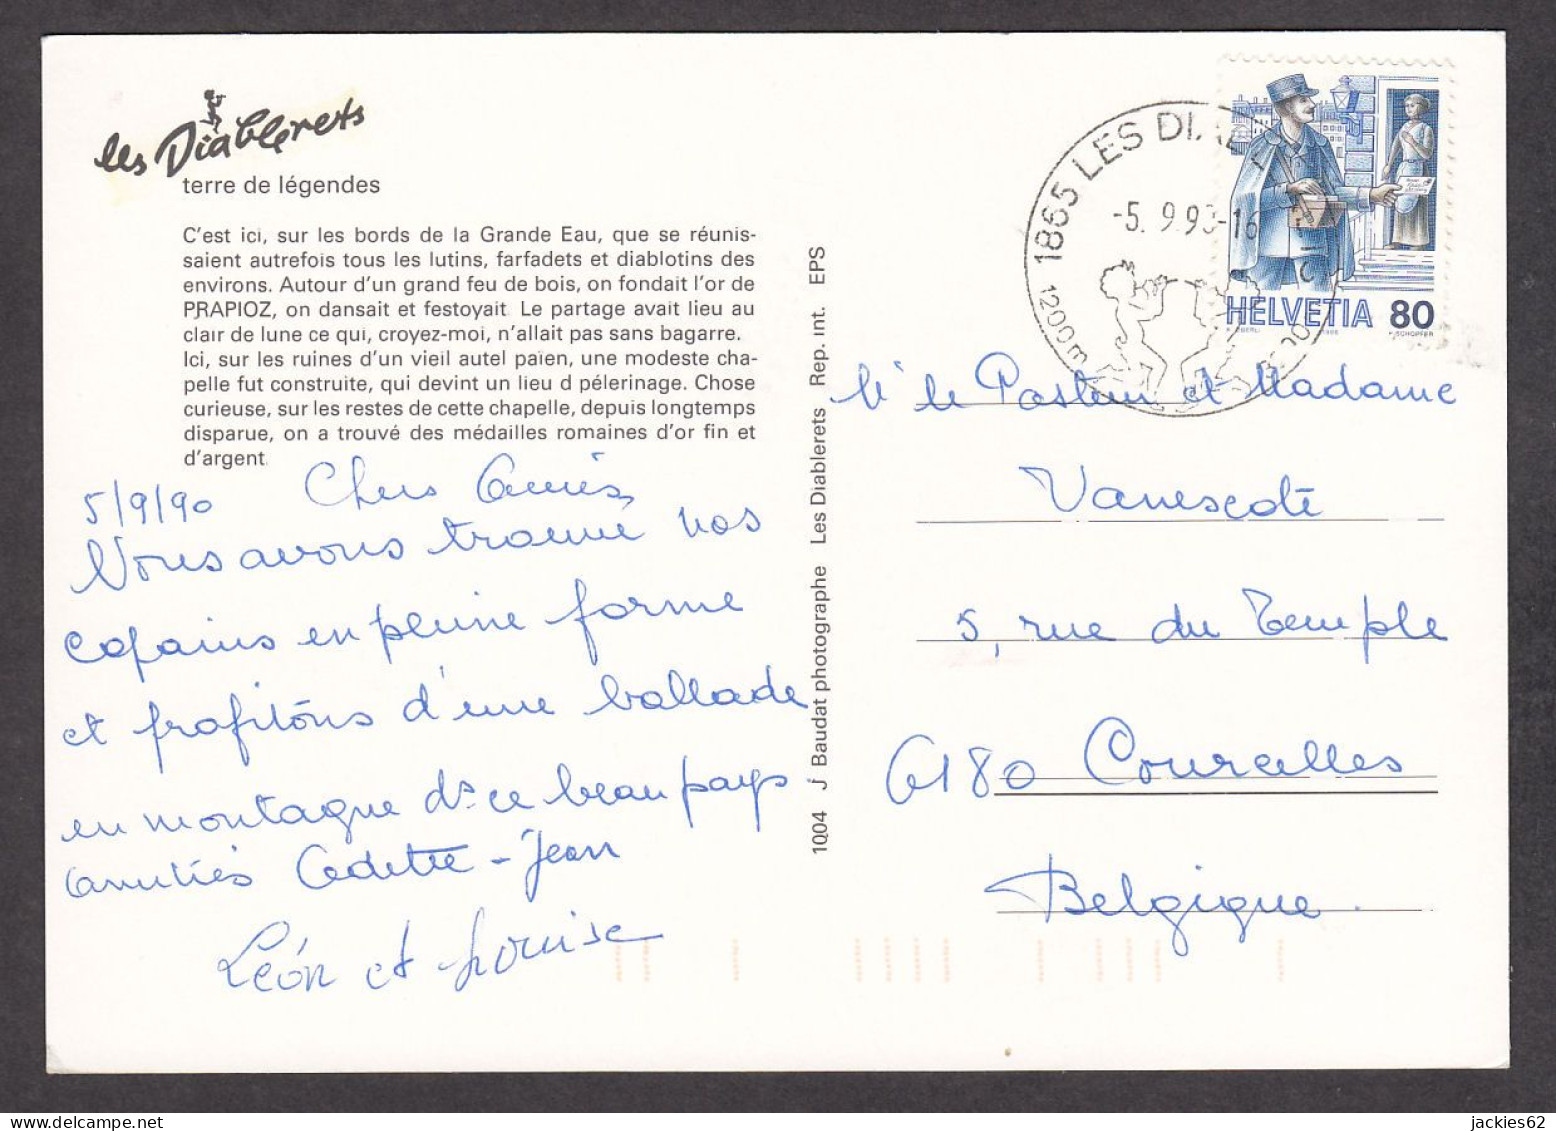 les Diablerets
terre de légendes
C'est ici, sur les bords de la Grande Eau, que se réunis-
saient autrefois tous les lutins, farfadets et diablotins des
environs. Autour d'un grand feu de bois, on fondait l'or de
PRAPIOZ, on dansait et festoyait. Le partage avait lieu au
clair de lune ce qui, croyez-moi, n'allait pas sans bagarre.
Ici, sur les ruines d'un vieil autel païen, une modeste cha-
pelle fut construite, qui devint un lieu d pélerinage. Chose
curieuse, sur les restes de cette chapelle, depuis longtemps
disparue, on a trouvé des médailles romaines d'or fin et
d'argent.
5/9/90 Chers Amis,
Nous avons trouvé nos
copains en pleine forme
et profitons d'une ballade
en montagne ds ce beau pays
Amitiés Odette - Jean
Léon et Louise
1004 J Baudat photographe Les Diablerets Rep. int. EPS
1865 LES DIABLE
-5. 9.90-16
1200m
3000
HELVETIA 80
H. SCHOPFER
Mr le Pasteur et Madame
Vanescote
5, rue du Temple
6180 Courcelles
Belgique.
jackies62